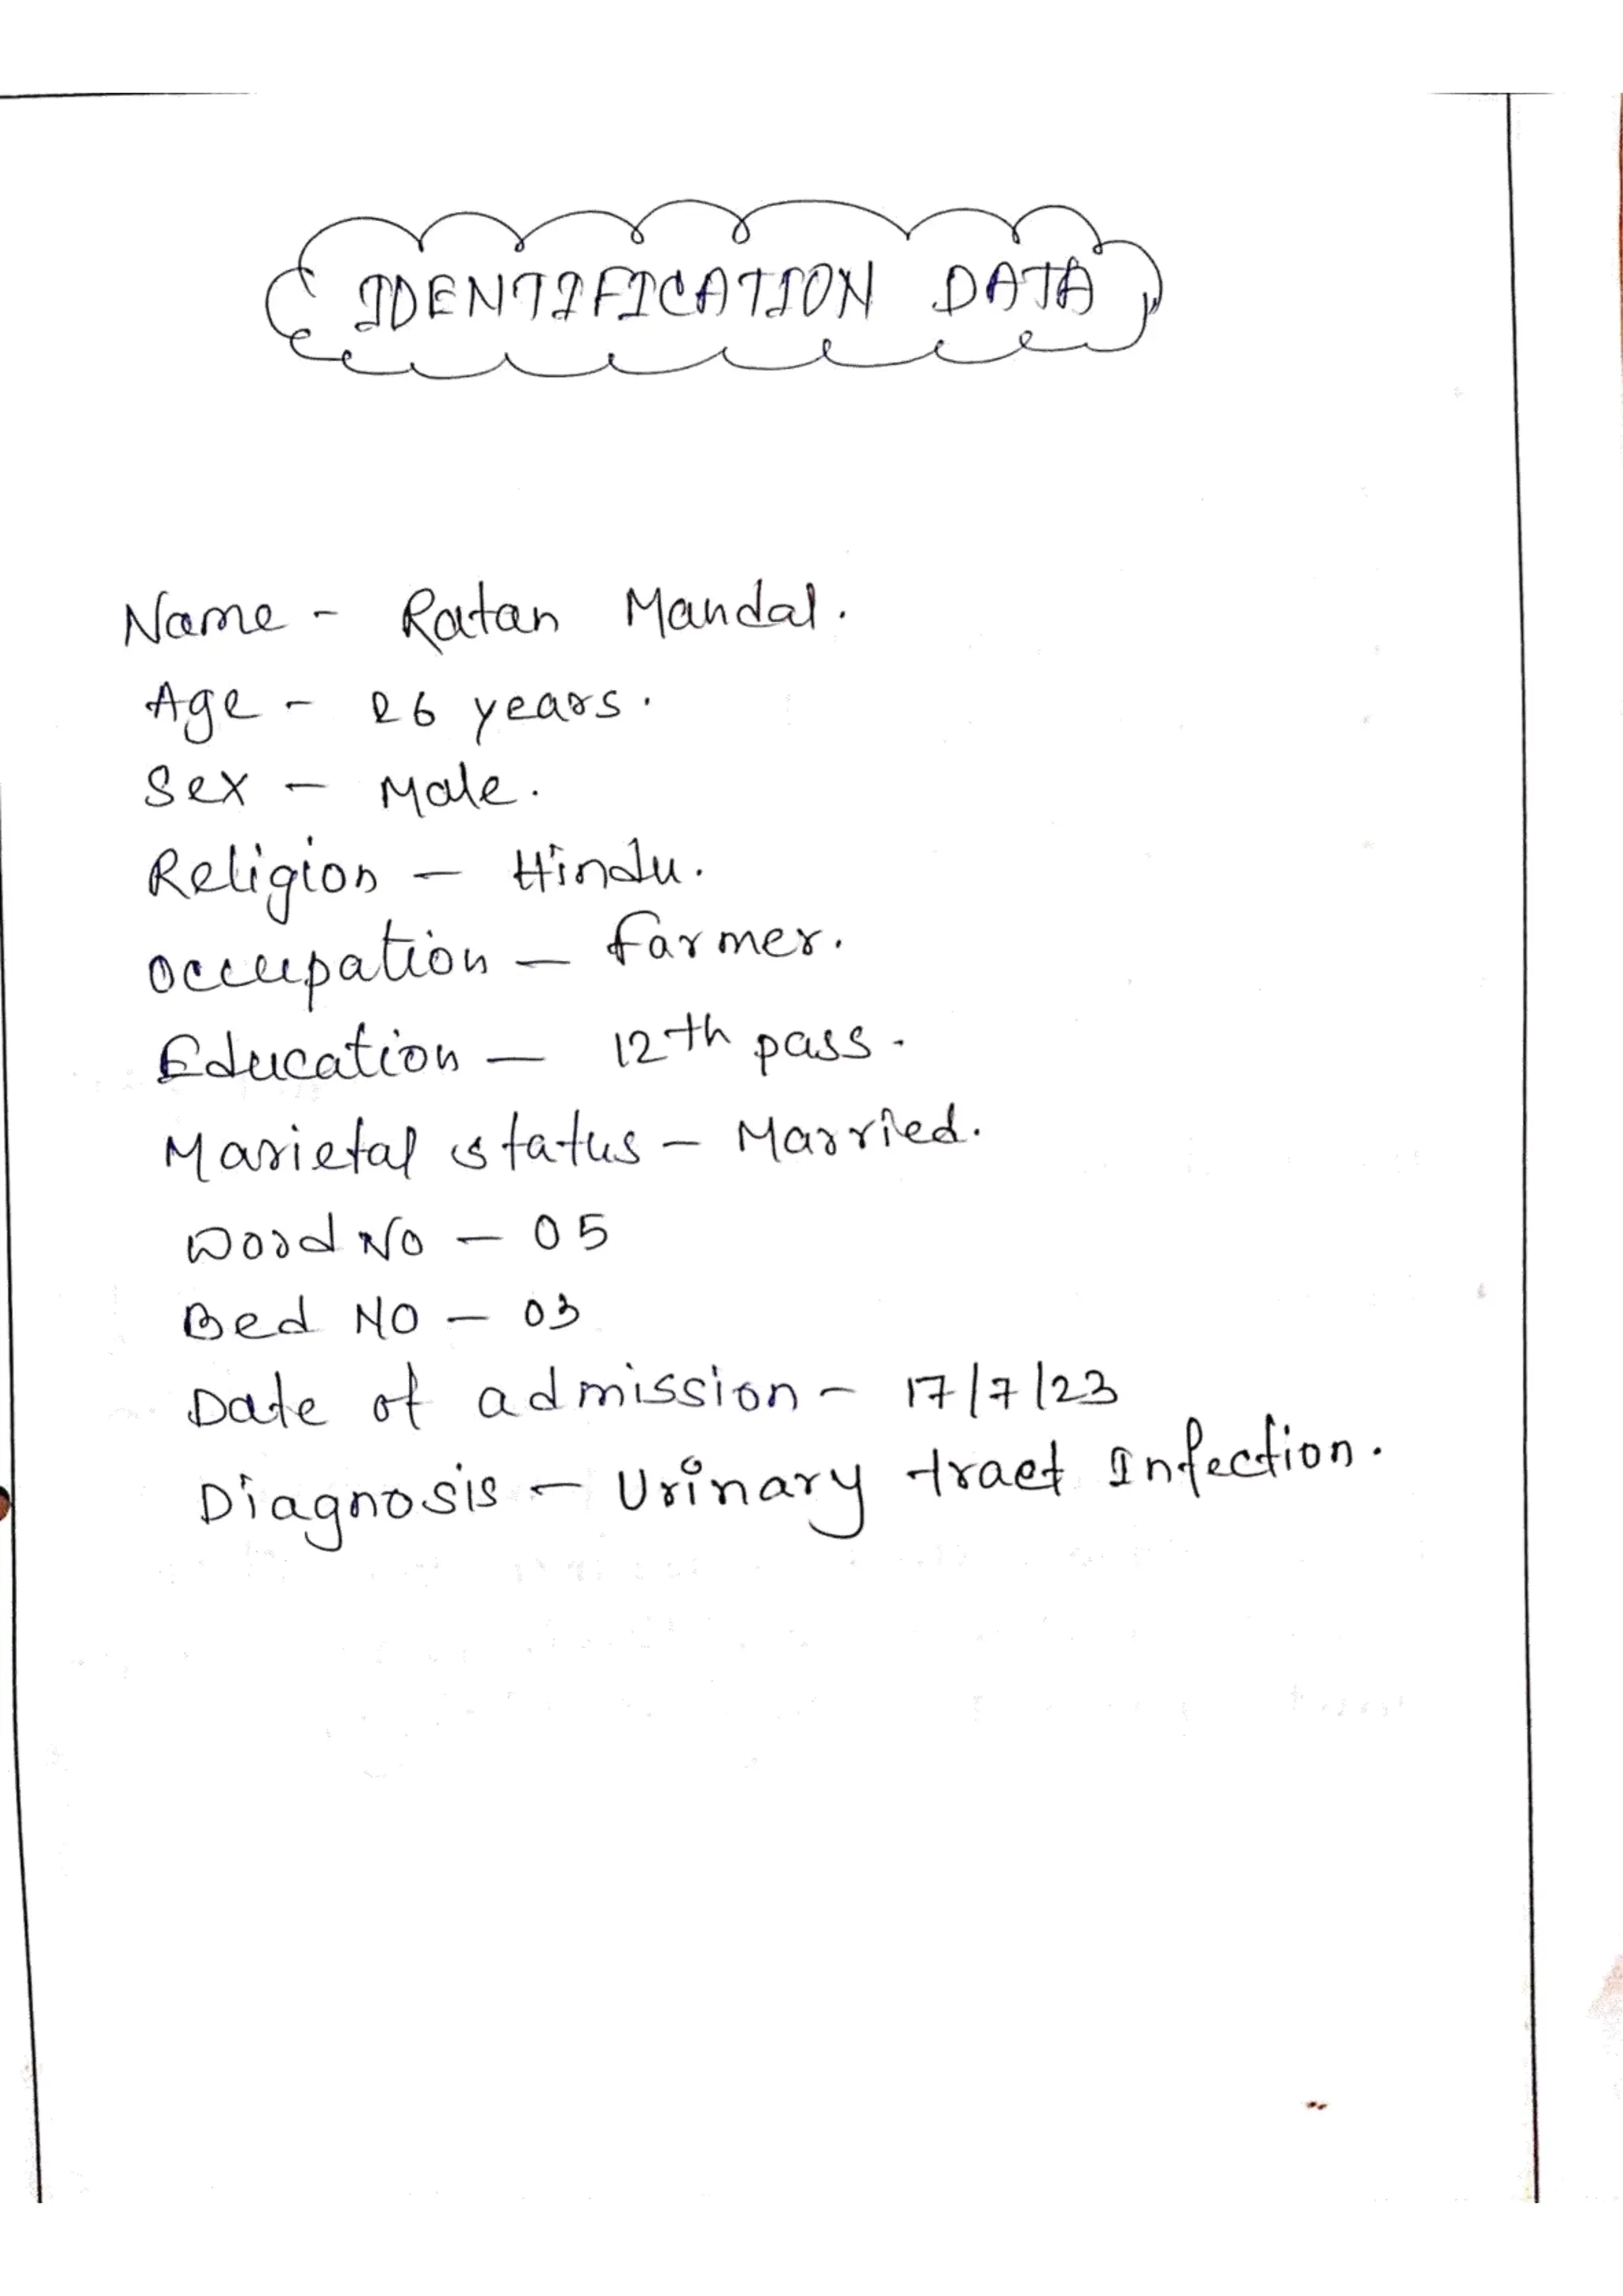 IDENTIFICATION DATA
Name - Ratan Mandal.
Age - 26 years.
Sex - Male.
Religion - Hindu.
Occupation - Farmer.
Education - 12th pass.
Marietal status - Married.
Word No - 05
Bed NO - 03
Date of admission - 17/7/23
Diagnosis - Urinary tract Infection.